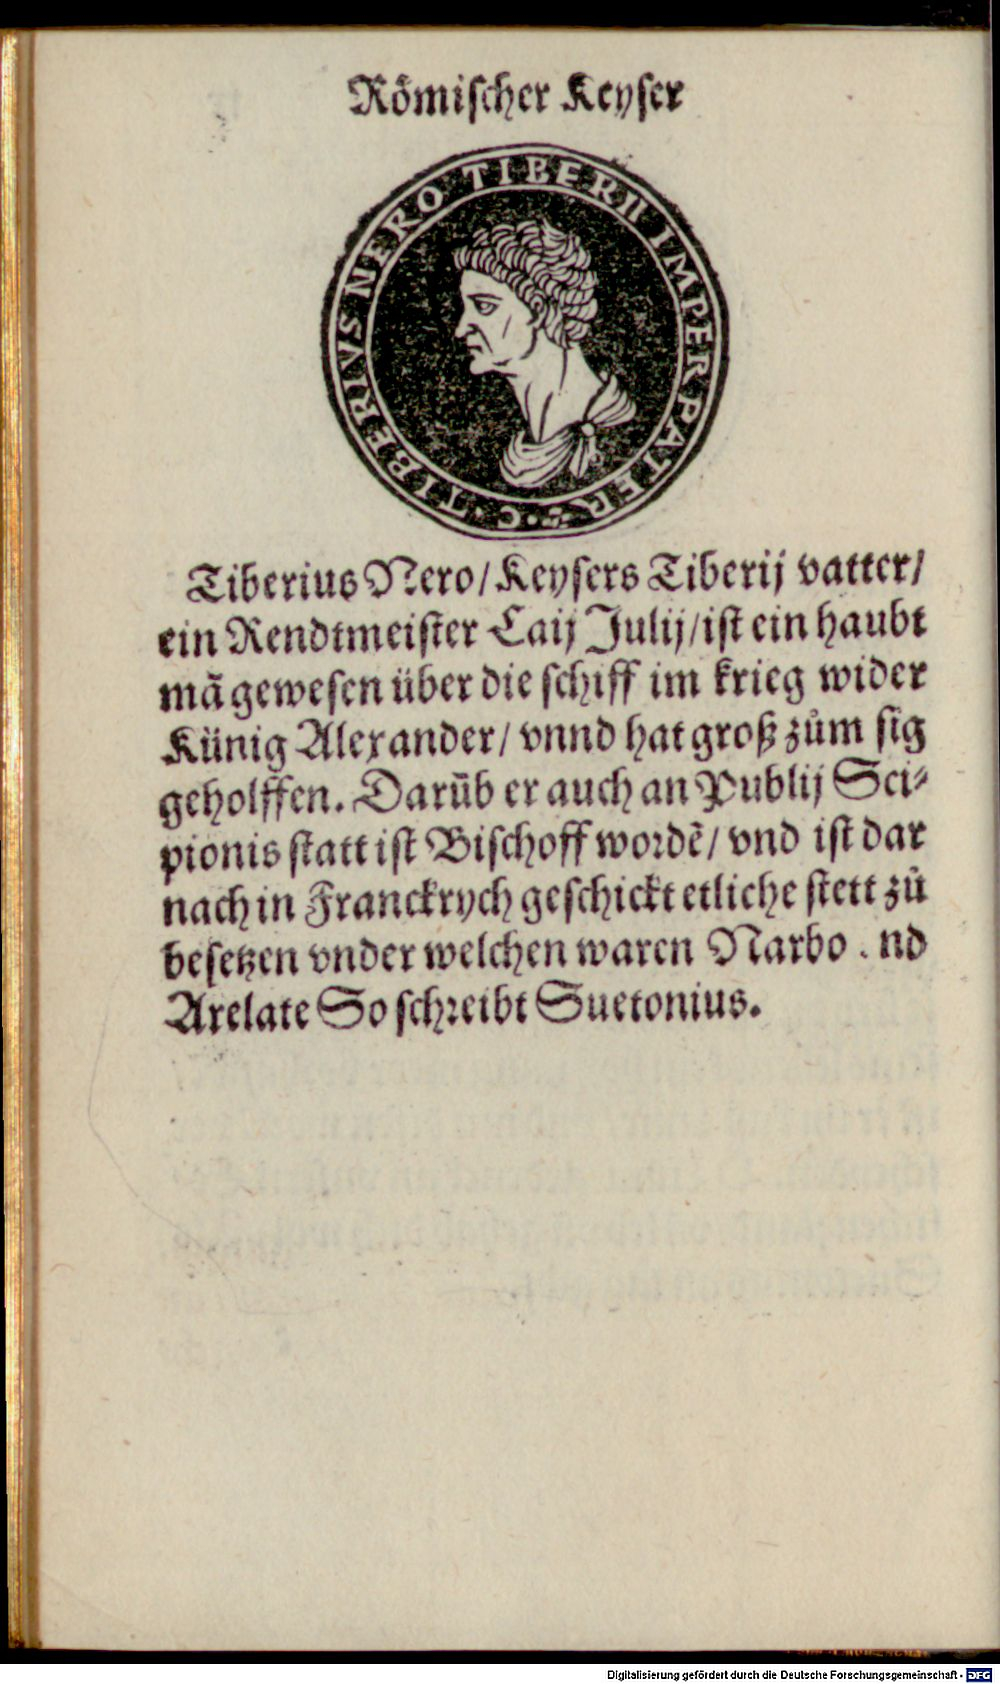 Roͤmiſcher Keyſer
C · TIBERIVS NERO TIBERII IMPER PATER
Tiberius Nero/ Keyſers Tiberij vatter/
ein Rendtmeiſter Caij Julij/ iſt ein haubt
mã geweſen über die ſchiff im krieg wider
Künig Alexander/ vnnd hat groß zům ſig
geholffen. Darūb er auch an Publij Sci⸗
pionis ſtatt iſt Biſchoff wordẽ/ vnd iſt dar
nach in Franckrych geſchickt etliche ſtett zů
beſetzen vnder welchen waren Narbo nd
Arelate So ſchreibt Suetonius.
Digitalisierung gefördert durch die Deutsche Forschungsgemeinschaft - DFG